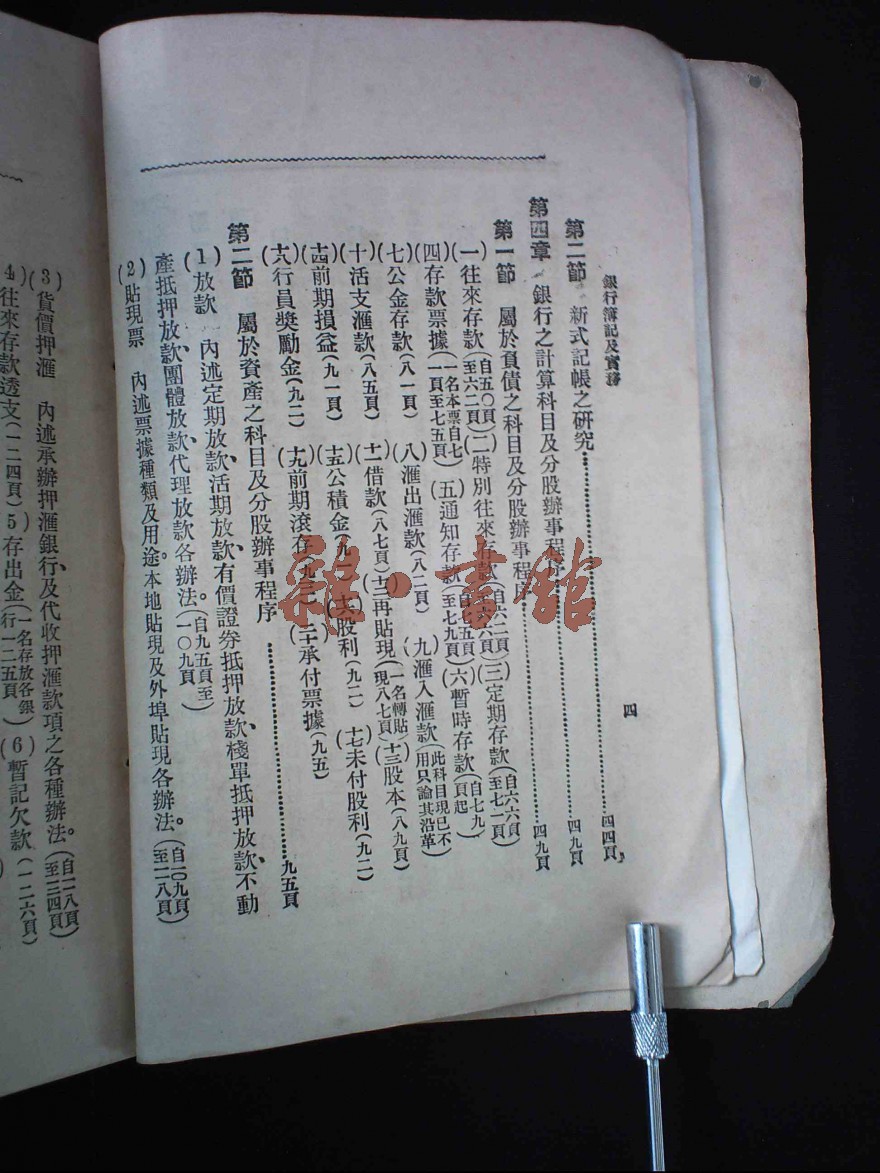 銀行簿記及實務 四
第二節 新式記帳之研究 四四頁
第四章 銀行之計算科目及分股辦事程 四九頁
第一節 屬於負債之科目及分股辦事程序 四九頁
(一)往來存款(自五〇頁至六二頁)(二)特別往來存款(自六二頁至六六頁)(三)定期存款(自六六頁至七一頁)
(四)存款票據(一名本票自七一頁至七五頁)(五)通知存款(自七五頁至七九頁)(六)暫時存款(自七九頁起)
(七)公金存款(八一頁) (八)滙出滙款(八二頁) (九)滙入滙款(此科目現已不用只論其沿革)
(十)活支滙款(八五頁) (十一)借款(八七頁)(十二)再貼現(一名轉貼現八七頁)(十三)股本(八九頁)
(十四)前期損益(九一頁) (十五)公積金(九一)(十六)股利(九二) (十七)未付股利(九二)
(十八)行員獎勵金(九二) (十九)前期滾存(九三)(二十)承付票據(九五)
第二節 屬於資產之科目及分股辦事程序 九五頁
(1)放款 內述定期放款、活期放款、有價證券抵押放款、棧單抵押放款、不動
產抵押放款、團體放款、代理放款各辦法。(自九五頁至一〇九頁)
(2)貼現票 內述票據種類及用途。本地貼現及外埠貼現各辦法。(自一〇九頁至一一八頁)
(3)貨價押滙 內述承辦押滙銀行、及代收押滙款項之各種辦法。(自一一八頁至一二四頁)
(4)往來存款透支(一二四頁)(5)存出金(一名存放各銀行一二五頁)(6)暫記欠款(一二六頁)
雜·書館